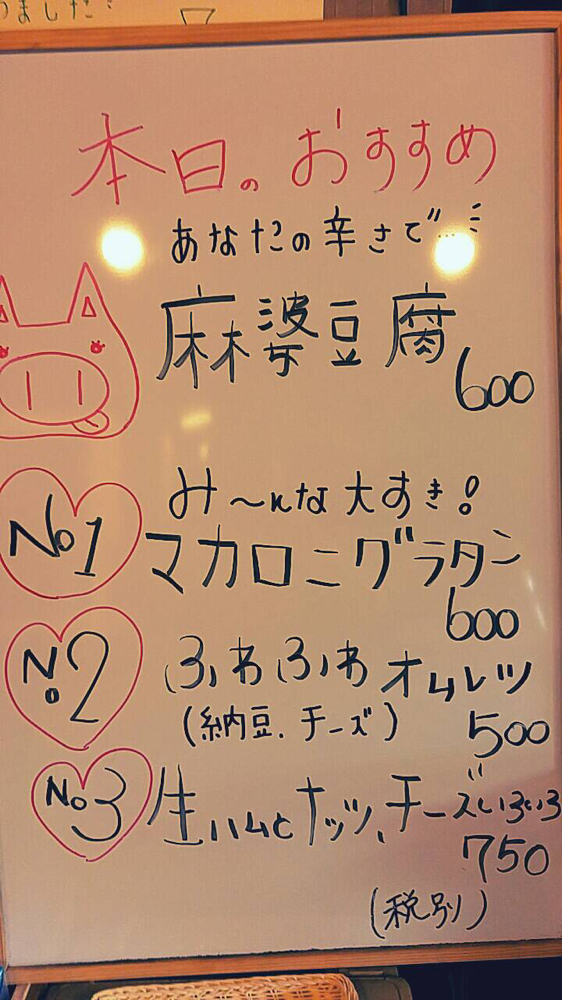 ました
本日のおすすめ
あなたの辛さで…
麻婆豆腐
600
No1
み〜んな大すき!
マカロニグラタン
600
No2
ふわふわオムレツ
(納豆.チーズ)
500
No3
生ハムとナッツ、チーズいろいろ
750
(税別)